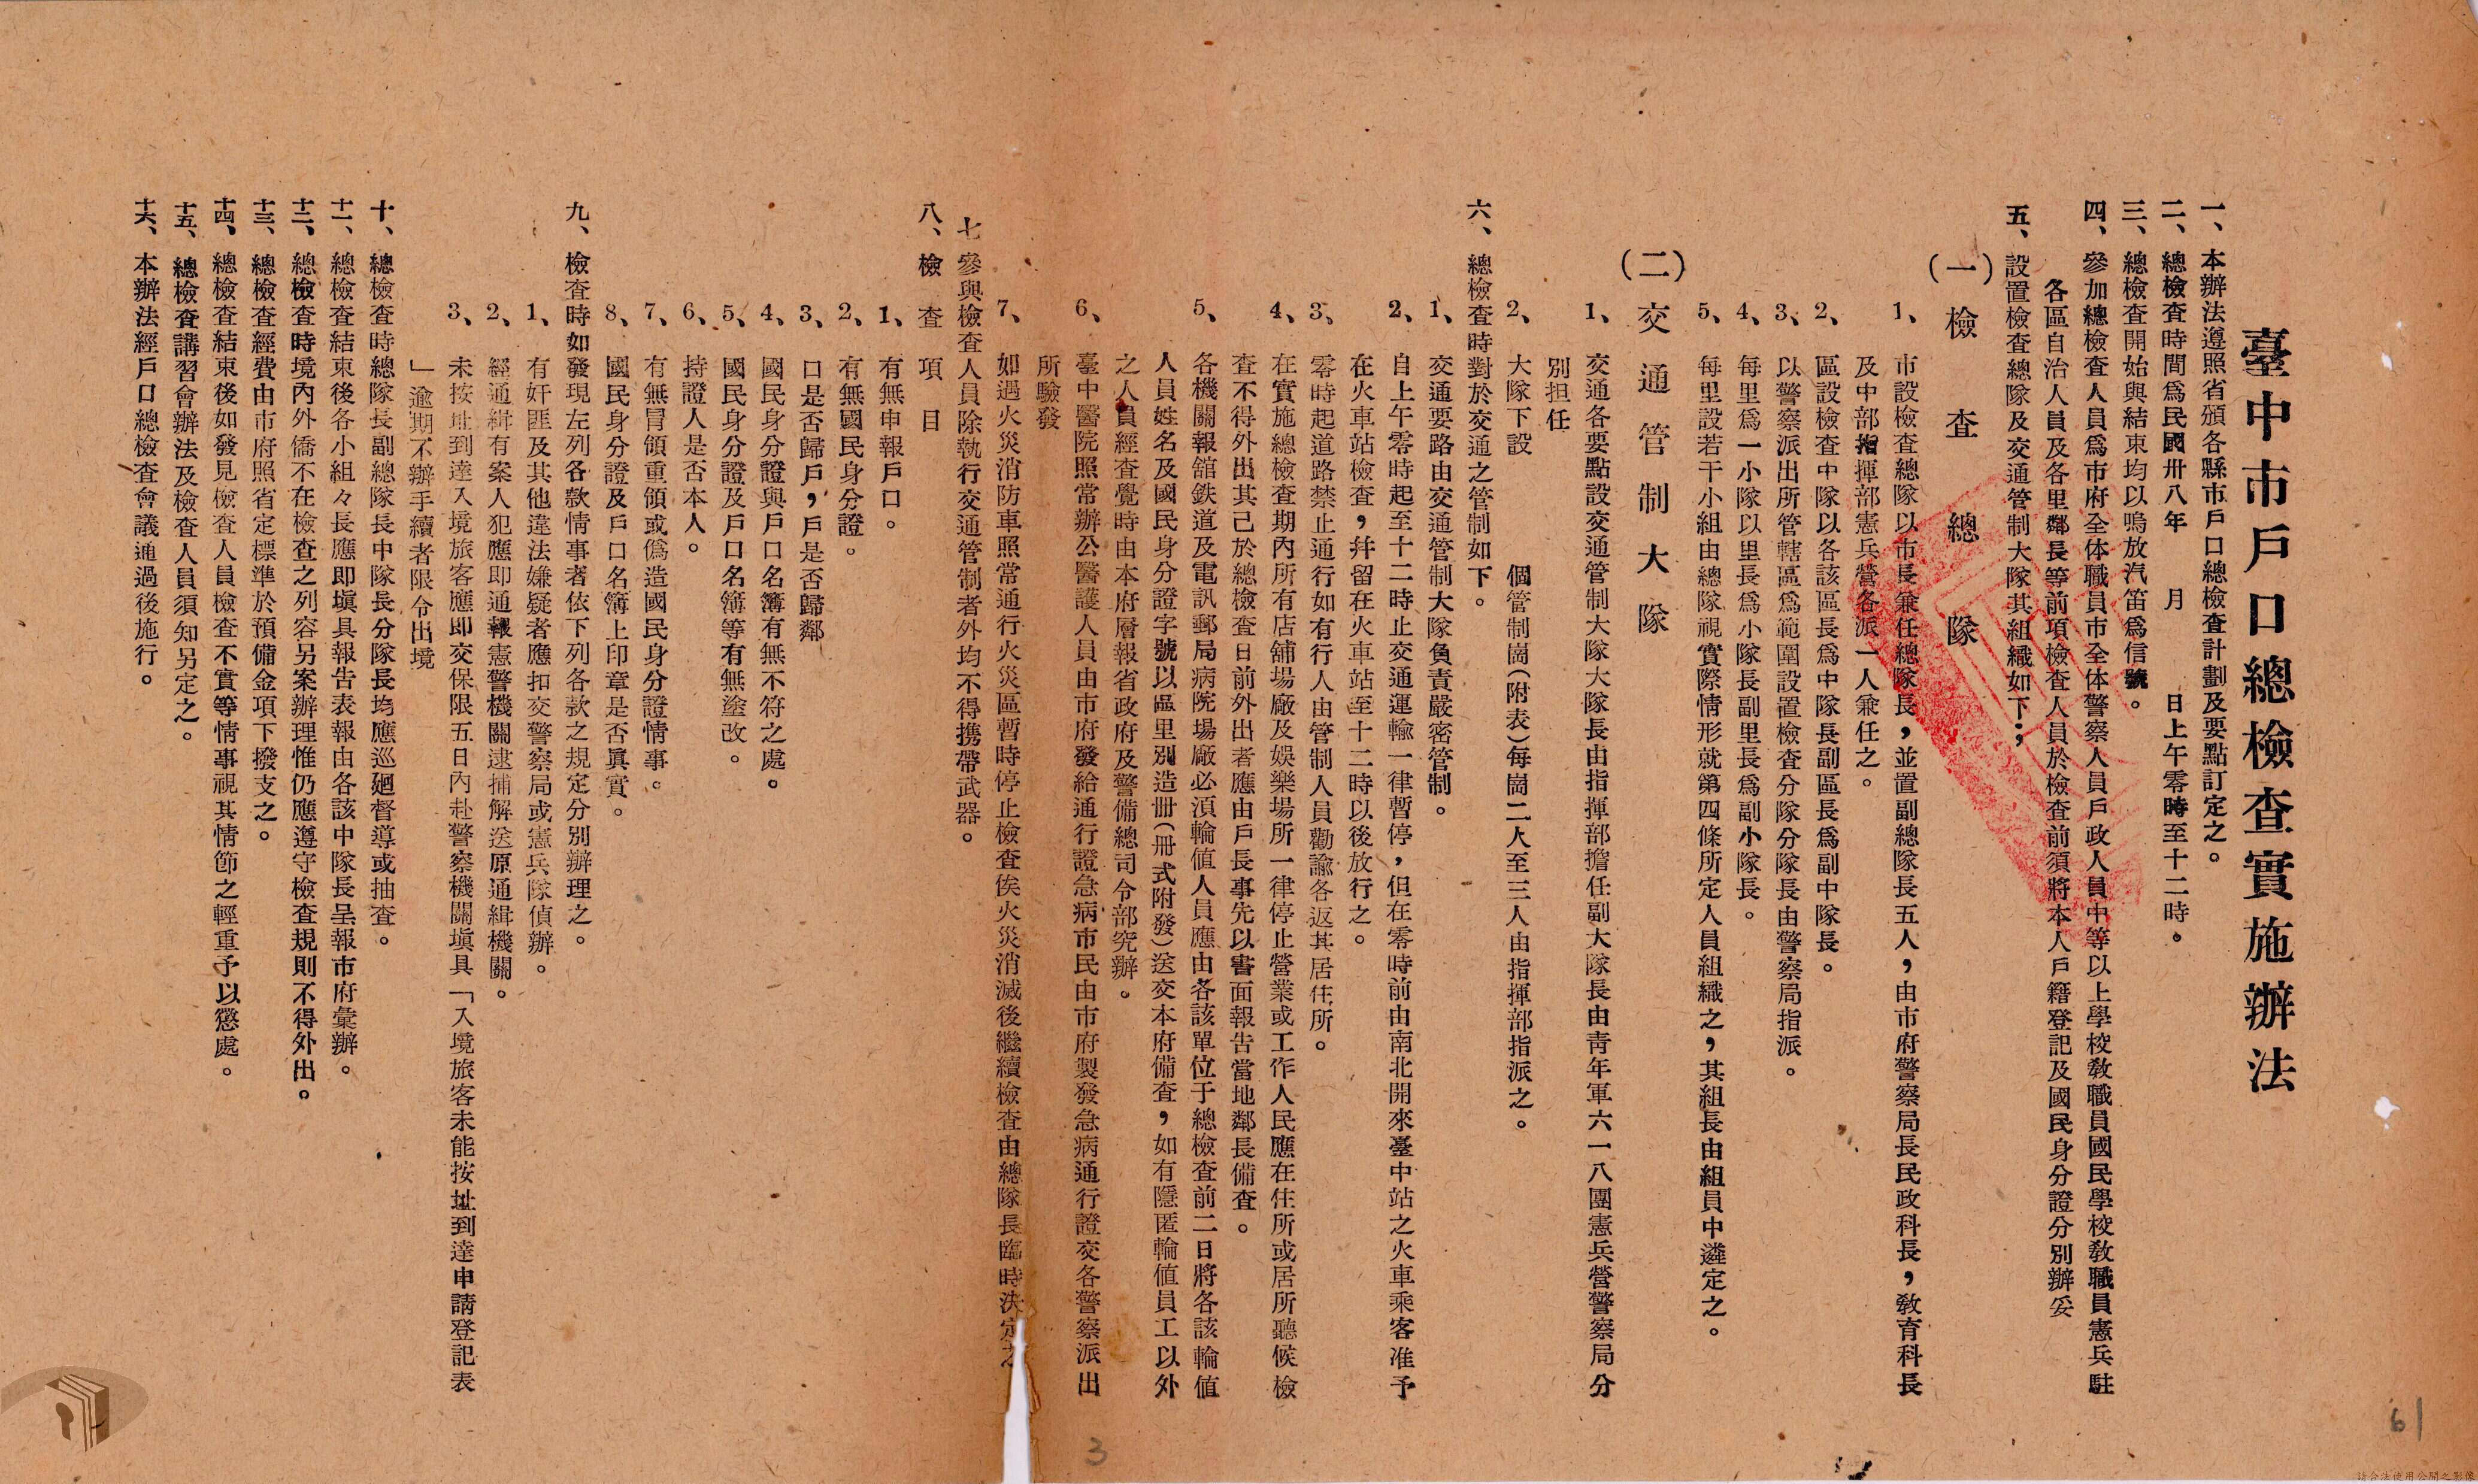 臺中市戶口總檢查實施辦法
一、本辦法遵照省頒各縣市戶口總檢查計劃及要點訂定之。
二、總檢查時間爲民國卅八年　月　日上午零時至十二時。
三、總檢查開始與結束均以鳴放汽笛爲信號。
四、參加總檢查人員爲市府全体職員市全体警察人員戶政人員中等以上學校教職員國民學校教職員憲兵駐
各區自治人員及各里鄰長等前項檢查人員於檢查前須將本人戶籍登記及國民身分證分別辦妥
五、設置檢查總隊及交通管制大隊其組織如下；
（一）檢查總隊
1、市設檢查總隊以市長兼任總隊長，並置副總隊長五人，由市府警察局長民政科長，教育科長
及中部指揮部憲兵營各派一人兼任之。
2、區設檢查中隊以各該區長爲中隊長副區長爲副中隊長。
3、以警察派出所管轄區爲範圍設置檢查分隊分隊長由警察局指派。
4、每里爲一小隊以里長爲小隊長副里長爲副小隊長。
5、每里設若干小組由總隊視實際情形就第四條所定人員組織之，其組長由組員中遴定之。
（二）交通管制大隊
1、交通各要點設交通管制大隊大隊長由指揮部擔任副大隊長由靑年軍六一八團憲兵營警察局分
別担任
2、大隊下設　個管制崗（附表）每崗二人至三人由指揮部指派之。
六、總檢查時對於交通之管制如下。
1、交通要路由交通管制大隊負責嚴密管制。
2、自上午零時起至十二時止交通運輸一律暫停，但在零時前由南北開來臺中站之火車乘客准予
在火車站檢查，幷留在火車站至十二時以後放行之。
3、零時起道路禁止通行如有行人由管制人員勸諭各返其居住所。
4、在實施總檢查期內所有店舖場廠及娛樂場所一律停止營業或工作人民應在住所或居所聽候檢
查不得外出其己於總檢查日前外出者應由戶長事先以書面報告當地鄰長備查。
5、各機關報舘鉄道及電訊郵局病院場廠必湏輪値人員應由各該單位于總檢查前二日將各該輪値
人員姓名及國民身分證字號以區里別造册（册式附發）送交本府備查，如有隱匿輪値員工以外
之人員經查覺時由本府層報省政府及警備總司令部究辦。
6、臺中醫院照常辦公醫護人員由市府發給通行證急病市民由市府製發急病通行證交各警察派出
所驗發
7、如遇火災消防車照常通行火災區暫時停止檢查俟火災消滅後繼續檢查由總隊長臨時決定之
七　參與檢查人員除執行交通管制者外均不得携帶武器。
八、檢查項目
1、有無申報戶口。
2、有無國民身分證。
3、口是否歸戶，戶是否歸鄰
4、國民身分證與戶口名簿有無不符之處。
5、國民身分證及戶口名簿等有無塗改。
6、持證人是否本人。
7、有無冒領重領或僞造國民身分證情事。
8、國民身分證及戶口名簿上印章是否眞實。
九、檢查時如發現左列各款情事者依下列各款之規定分別辦理之。
1、有奸匪及其他違法嫌疑者應扣交警察局或憲兵隊偵辦。
2、經通緝有案人犯應即通報憲警機關逮捕解送原通緝機關。
3、未按址到達入境旅客應即交保限五日內赴警察機關塡具「入境旅客未能按址到達申請登記表
」逾期不辦手續者限令出境
十、總檢查時總隊長副總隊長中隊長分隊長均應巡廻督導或抽查。
十一、總檢查結束後各小組々長應即塡具報告表報由各該中隊長呈報市府彙辦。
十二、總檢查時境內外僑不在檢查之列容另案辦理惟仍應遵守檢查規則不得外出。
十三、總檢查經費由市府照省定標準於預備金項下撥支之。
十四、總檢查結束後如發見檢查人員檢查不實等情事視其情節之輕重予以懲處。
十五、總檢查講習會辦法及檢查人員須知另定之。
十六、本辦法經戶口總檢查會議通過後施行。
3
61
請合法使用公開之影像